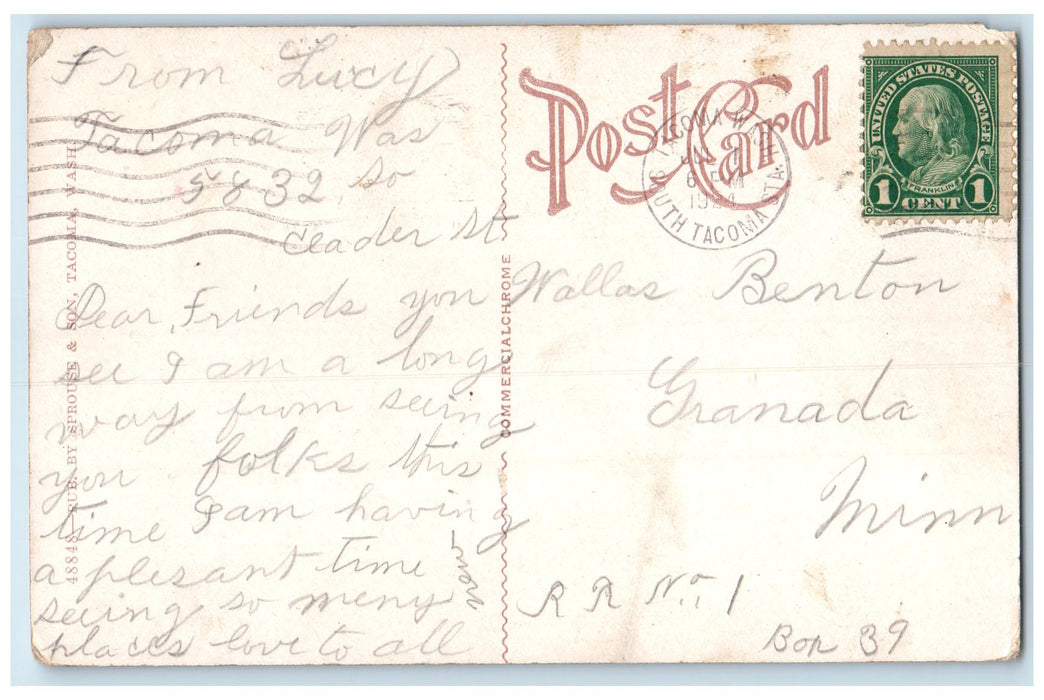 From Lucy
Tacoma Was
5832 So
Cleader St
Dear, Friends you
see I am a long
way from seeing
you folks this
time I am having
a plesant time
seeing so meny new
places love to all
48848—PUB. BY SPROUSE & SON, TACOMA, WASH.
COMMERCIALCHROME
Post Card
TACOMA WASH.
SOUTH TACOMA STA.
UNITED STATES POSTAGE
FRANKLIN
1 CENT 1
Wallas Benton
Granada
Minn
R R No. 1
Box 39